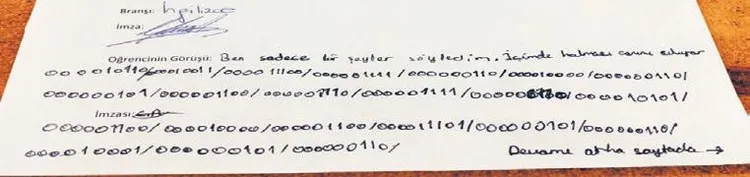 Branşı: İngilizce
İmza:
Öğrencinin Görüşü: Ben sadece bir şeyler söyledim. İçinde kalması canımı sıkıyor
000010110/00010011/000011100/000001111/000000110/000010000/000000110/
000000101/000001100/000001110/000001111/000000110/000010101/
İmzası:
000001100/000010000/000001100/000011101/000000101/000000110/
000010001/000000101/000000110/
Devamı arka sayfada →